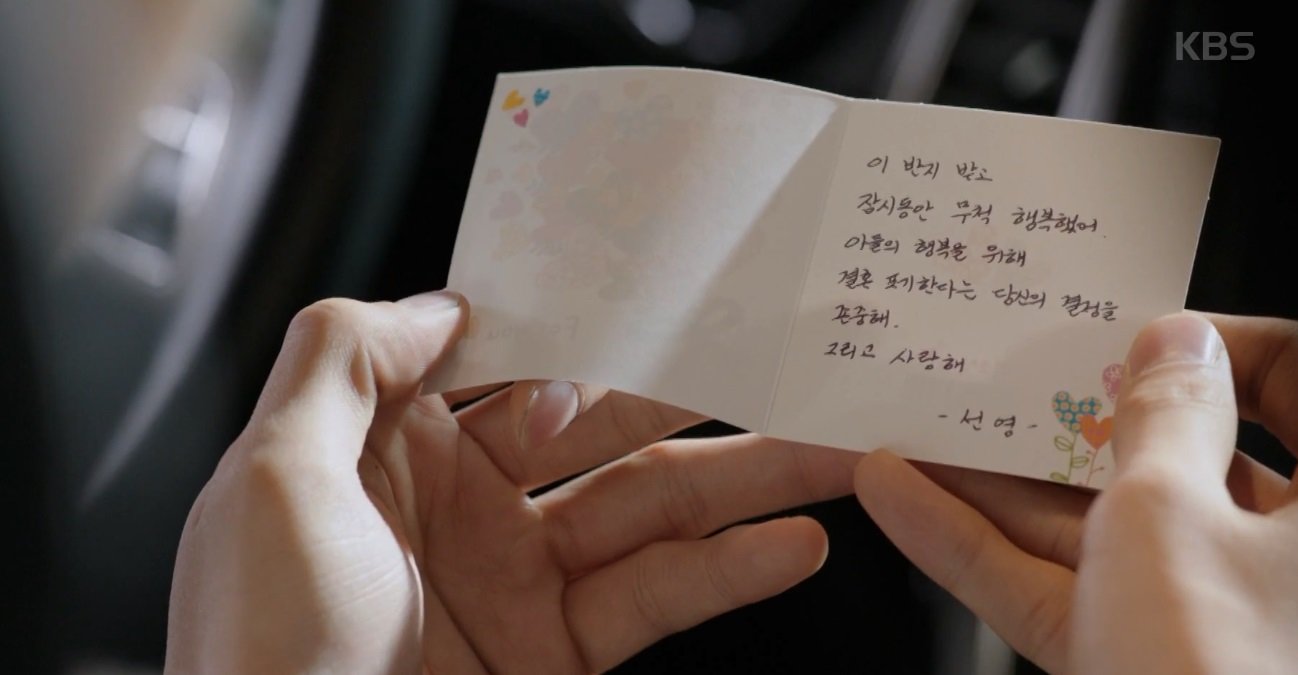 KBS
이 반지 받고
잠시동안 무척 행복했어.
아들의 행복을 위해
결혼 포기한다는 당신의 결정을
존중해.
그리고 사랑해
- 선영 -